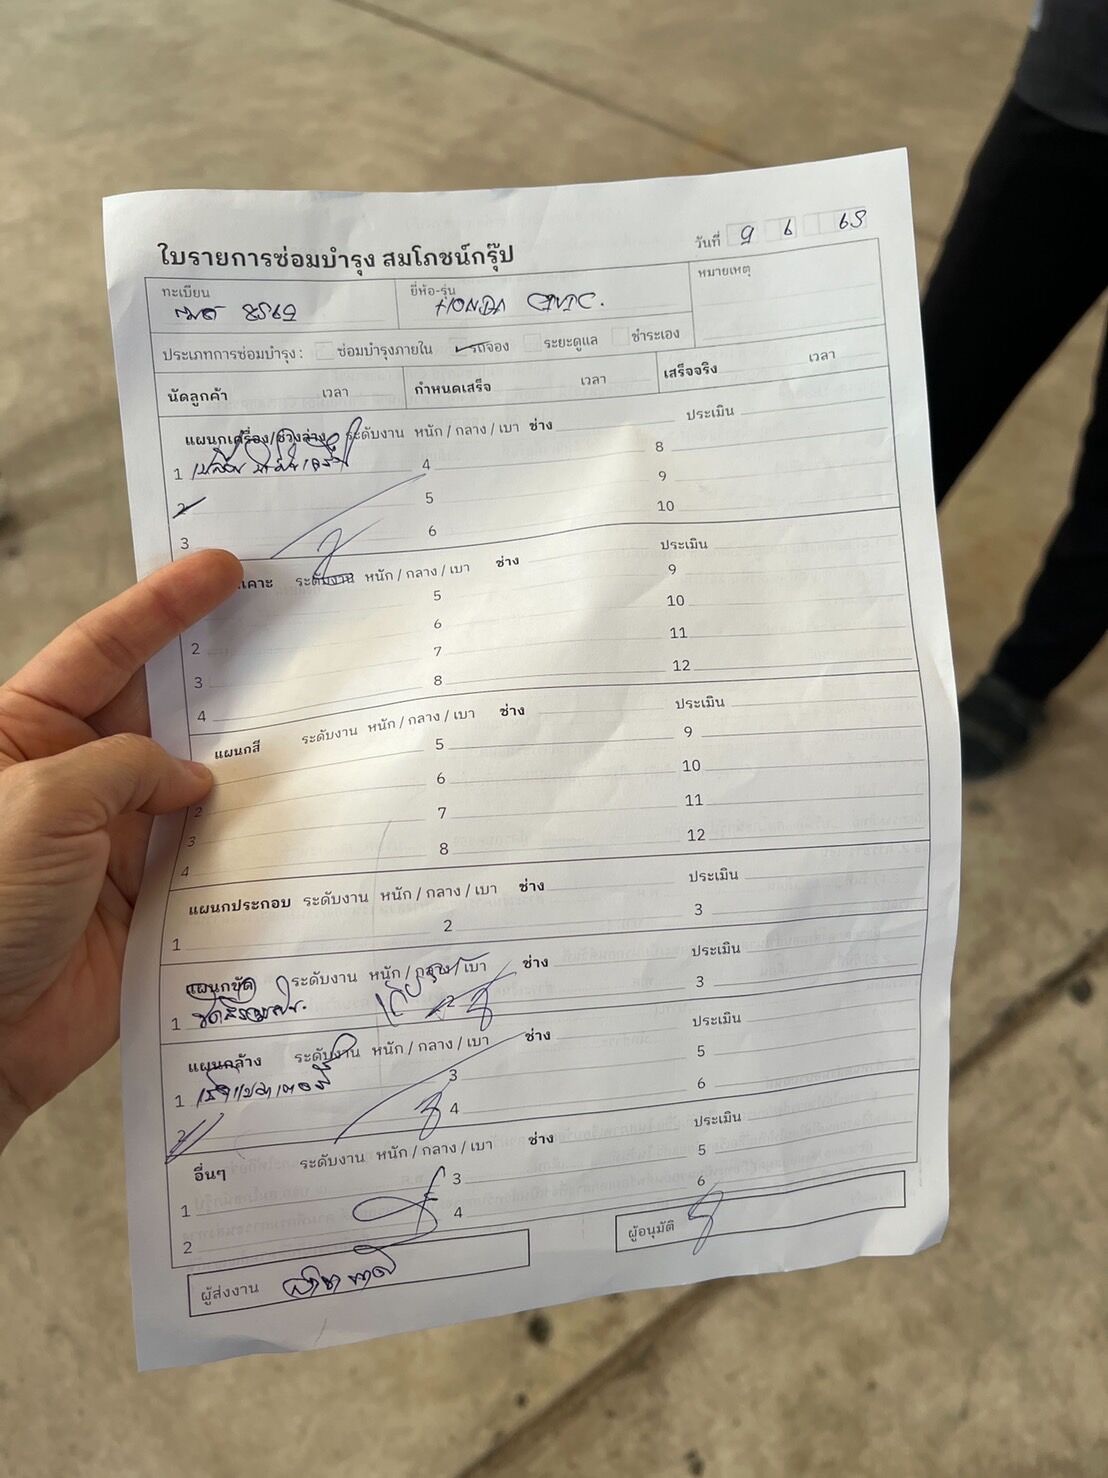 ใบรายการซ่อมบำรุง สมโภชน์กรุ๊ป
วันที่ 9 6 68
ทะเบียน 8569
ยี่ห้อ-รุ่น HONDA CIVIC.
หมายเหตุ
ประเภทการซ่อมบำรุง : ซ่อมบำรุงภายใน รถจอง ระยะดูแล ชำระเอง
นัดลูกค้า เวลา กำหนดเสร็จ เวลา เสร็จจริง เวลา
แผนกเครื่อง/ช่วงล่าง ระดับงาน หนัก / กลาง / เบา ช่าง ประเมิน
1 เปลี่ยน 4 8
2 5 9
3 6 10
เคาะ ระดับงาน หนัก / กลาง / เบา ช่าง ประเมิน
5 9
2 6 10
3 7 11
4 8 12
แผนกสี ระดับงาน หนัก / กลาง / เบา ช่าง ประเมิน
5 9
2 6 10
3 7 11
4 8 12
แผนกประกอบ ระดับงาน หนัก / กลาง / เบา ช่าง ประเมิน
1 2 3
แผนกขัด ระดับงาน หนัก / กลาง / เบา ช่าง ประเมิน
1 2 3
แผนกล้าง ระดับงาน หนัก / กลาง / เบา ช่าง ประเมิน
1 3 5
2 4 6
อื่นๆ ระดับงาน หนัก / กลาง / เบา ช่าง ประเมิน
1 3 5
2 4 6
ผู้ส่งงาน
ผู้อนุมัติ